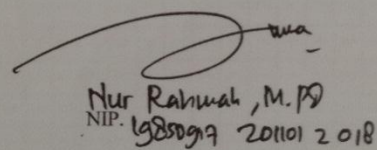 Nur Rahmah, M.Pd
NIP. 19850917 201101 2 018